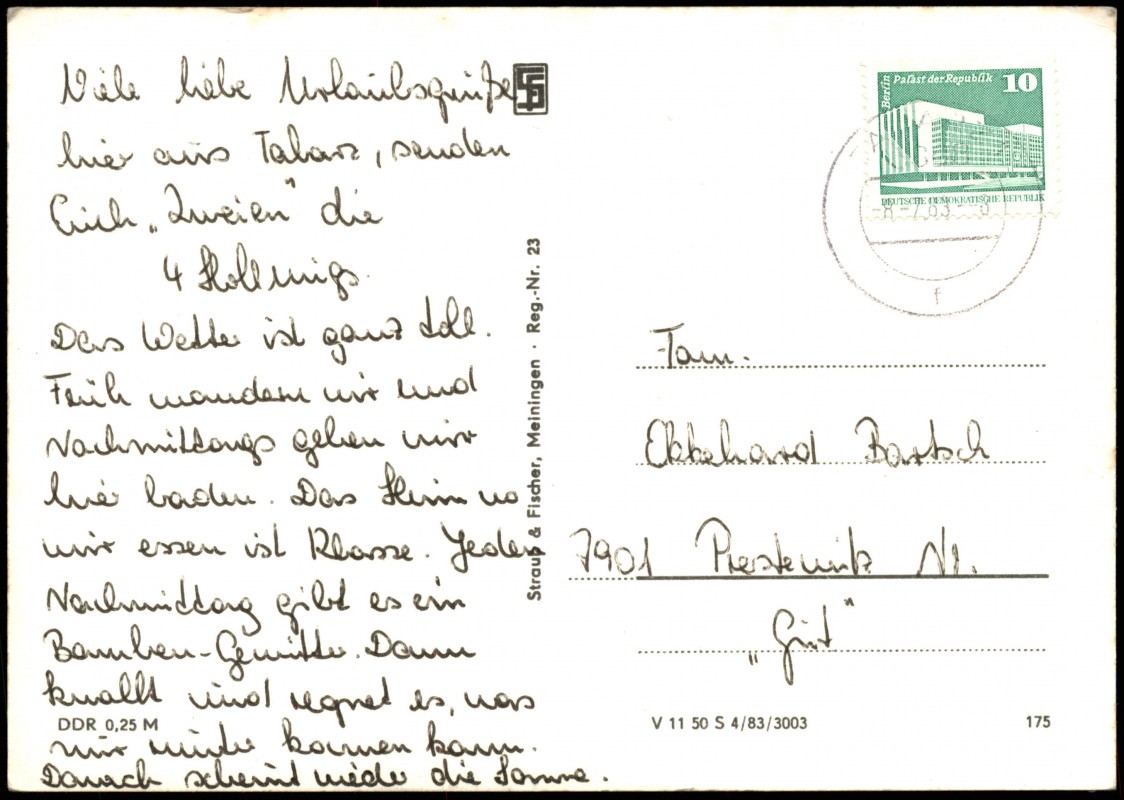 Viele liebe Urlaubsgrüße
hier aus Tabarz, senden
Euch „Zweien" die
4 Hollwigs.
Das Wetter ist ganz toll.
Früh wandern wir und
Nachmittags gehen wir
hier baden. Das Heim wo
wir essen ist Klasse. Jeden
Nachmittag gibt es ein
Bomben-Gewitter. Dann
knallt und regnet es, was
nur runter kommen kann.
Danach scheint wieder die Sonne.
DDR 0,25 M
Straub & Fischer, Meiningen · Reg.-Nr. 23
Berlin
Palast der Republik
10
DEUTSCHE DEMOKRATISCHE REPUBLIK
-8-7.83-8
f
Fam.
Ekkehard Bartsch
7901 Prestewitz Nr.
„Gut"
V 11 50 S 4/83/3003
175